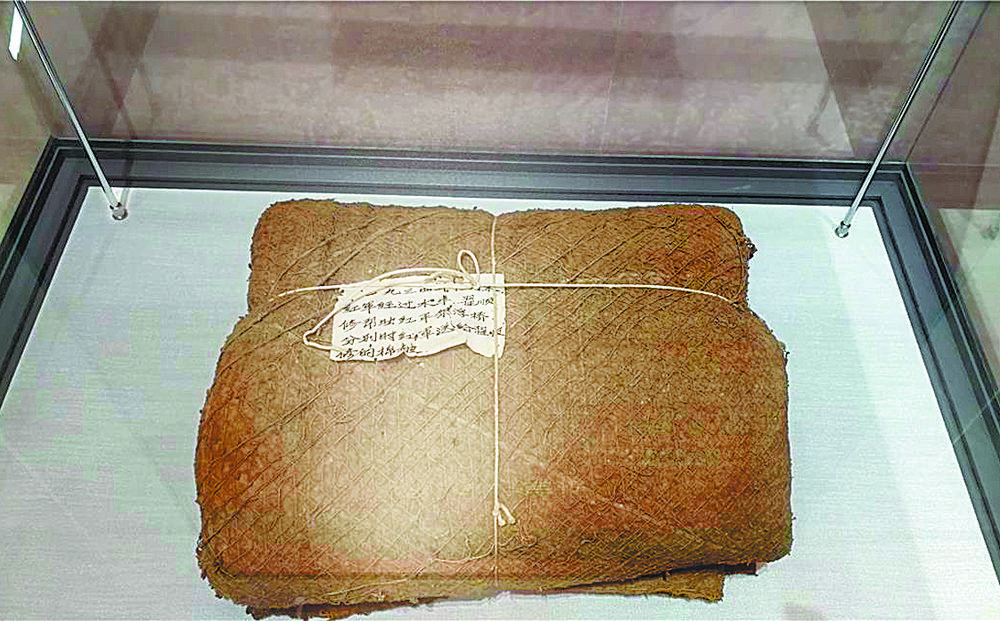 九三四
红军经过 顺
修帮助红军架浮桥
分别时红军送给 顺
修的棉毯